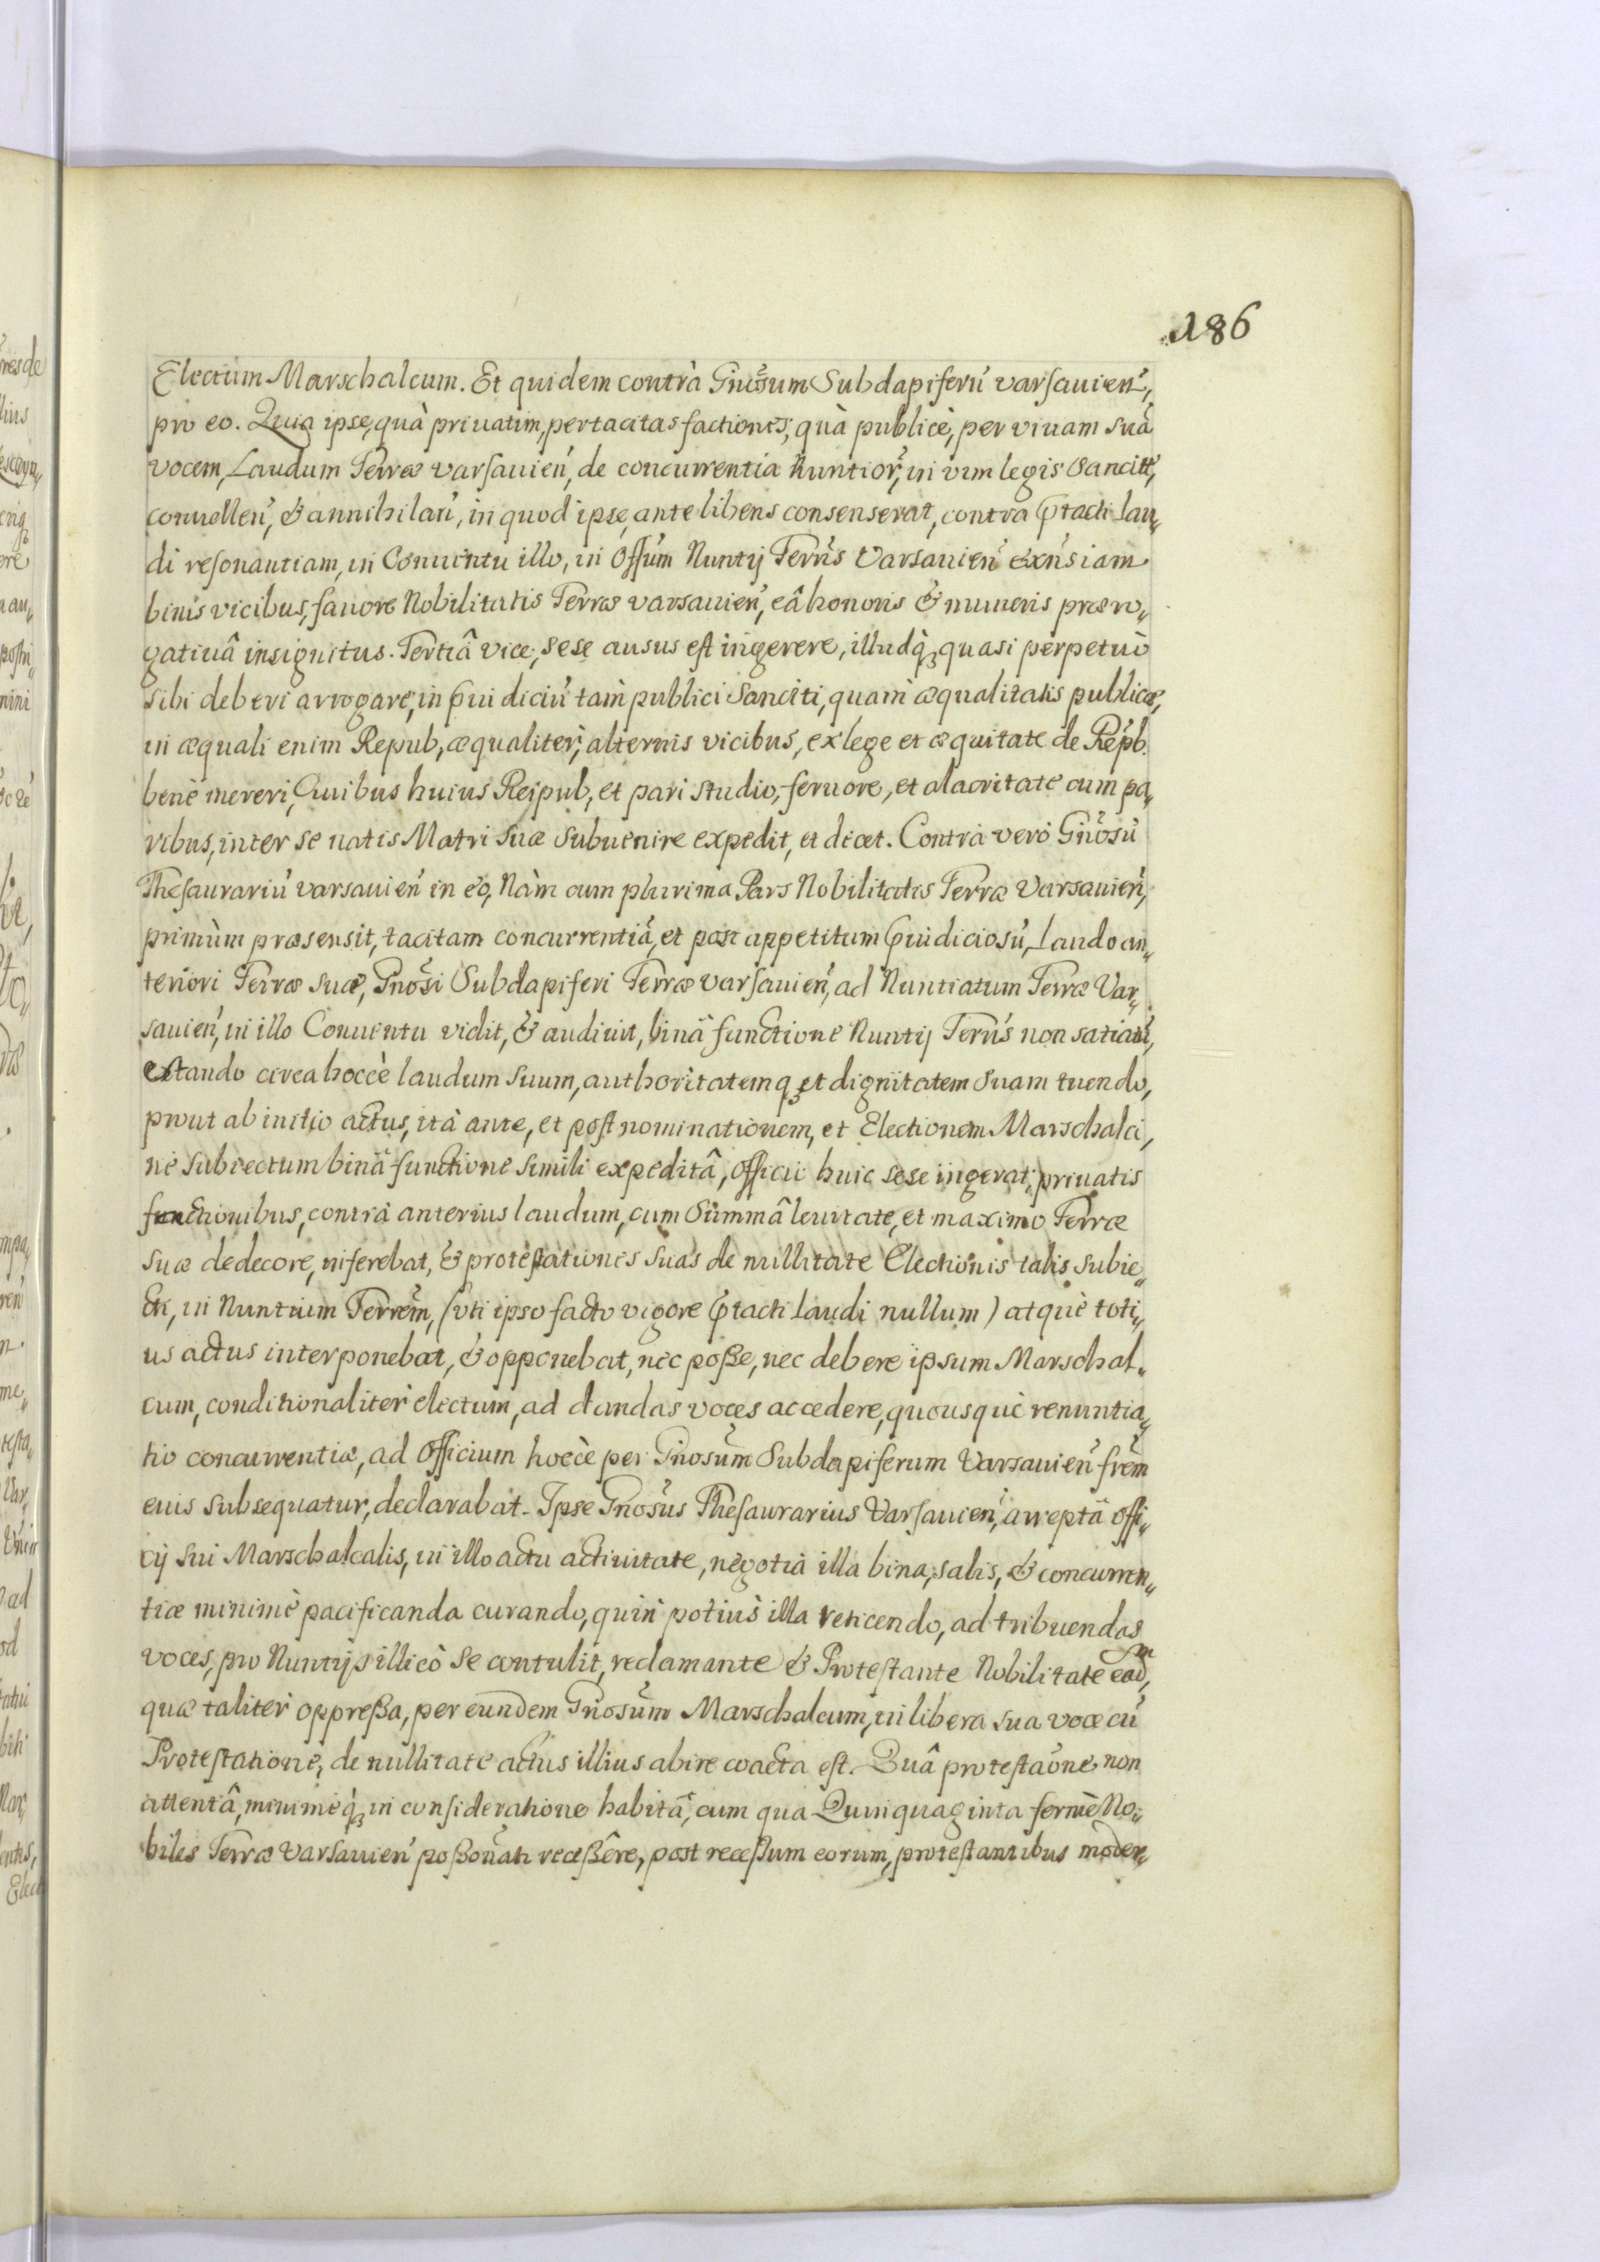 186
Electum Marschalcum. Et quidem contrà Gnosum Subdapiferū varsauien̄,
pro eo. Quia ipse, quà priuatim, per tacitas factiones, quà publicè, per viuam suā
vocem, Laudum Terræ varsauien̄, de concurrentia Nuntior̄, in vim legis Sancitū,
conuellen̄, & annihilan̄, in quod ipse, ante libens consenserat, contra p̄tacti Lau„
di resonantiam, in Conuentu illo, in Offūm Nuntij Terr̄is Varsauien̄ exn̄s iam
binis vicibus, fauore Nobilitatis Terræ varsauien̄, eâ honoris & muneris præro„
gatiuâ insignitus. Tertiâ vice, sese ausus est ingerere, illudq́ꝫ quasi perpetuò
sibi deberi arrogare, in p̄iudiciū tam publici Sanciti, quam æqualitatis publicæ,
in æquali enim Repub, æqualiter, alternis vicibus, ex lege et æquitate de Rēpb.
benè mereri, Ciuibus huius Reipub, et pari studio, feruore, et alacritate cum pa„
ribus, inter se natis Matri suæ subuenire expedit, et decet. Contrà verò Gn̄osū
Thesaurariū varsauien̄ in eo, Nàm cum plurima Pars Nobilitatis Terræ Varsauien̄,
primùm præsensit, tacitam concurrentiā, et post appetitum p̄iudiciosū, Laudo an„
teriori Terræ suæ, Gnōsi Subdapiferi Terræ varsauien̄, ad Nuntiatum Terræ Var„
sauien̄, in illo Conuentu vidit, & audiuit, binâ functione Nuntij Terr̄is non satiati,
extando circa hoccè laudum suum, authoritatemqꝫ et dignitatem suam tuendo,
prout ab initio actus, ità ante, et post nominationem, et Electionem Marschalci,
nè subiectum binâ functione simili expeditâ, officii huic sese ingerat, priuatis
functionibus, contrà anterius laudum, cum Summâ leuitate, et maximo Terræ
suæ dedecore, inferebat, & protestationes suas de nullitate Electionis talis subie„
cti, in Nuntium Terrēm, (vti ipso facto vigore p̄tacti Laudi nullum) atquè toti„
us actus interponebat, & opponebat, nec poße, nec debere ipsum Marschal„
cum, conditionaliter electum, ad dandas voces accedere, quousquè renuntia„
tio concurrentiæ, ad Officium hoccè per Gn̄osūm Subdapiferum Varsauien̄ frēm
eius subsequatur, declarabat. Ipse Gnōsus Thesaurarius Varsauien̄, arreptâ Offi„
cij sui Marschalcalis, in illo actu actiuitate, negotia illa bina, salis, & concurren„
tiæ minimè pacificanda curando, quin potius illa reticendo, ad tribuendas
voces, pro Nuntijs illicò se contulit, reclamante & Protestante Nobilitate eadm,
quæ taliter oppreßa, per eundem Gnosūm Marschalcum, in libera sua voce cū
Protestatione, de nullitate actus illius abire coacta est. Quâ protestaōne non
attentâ, minimeq́ꝫ in consideratione habitâ, cum qua Quinquaginta fermè No„
biles Terræ Varsauien̄ poßoūati receßêre, post receßum eorum, protestantibus moder„